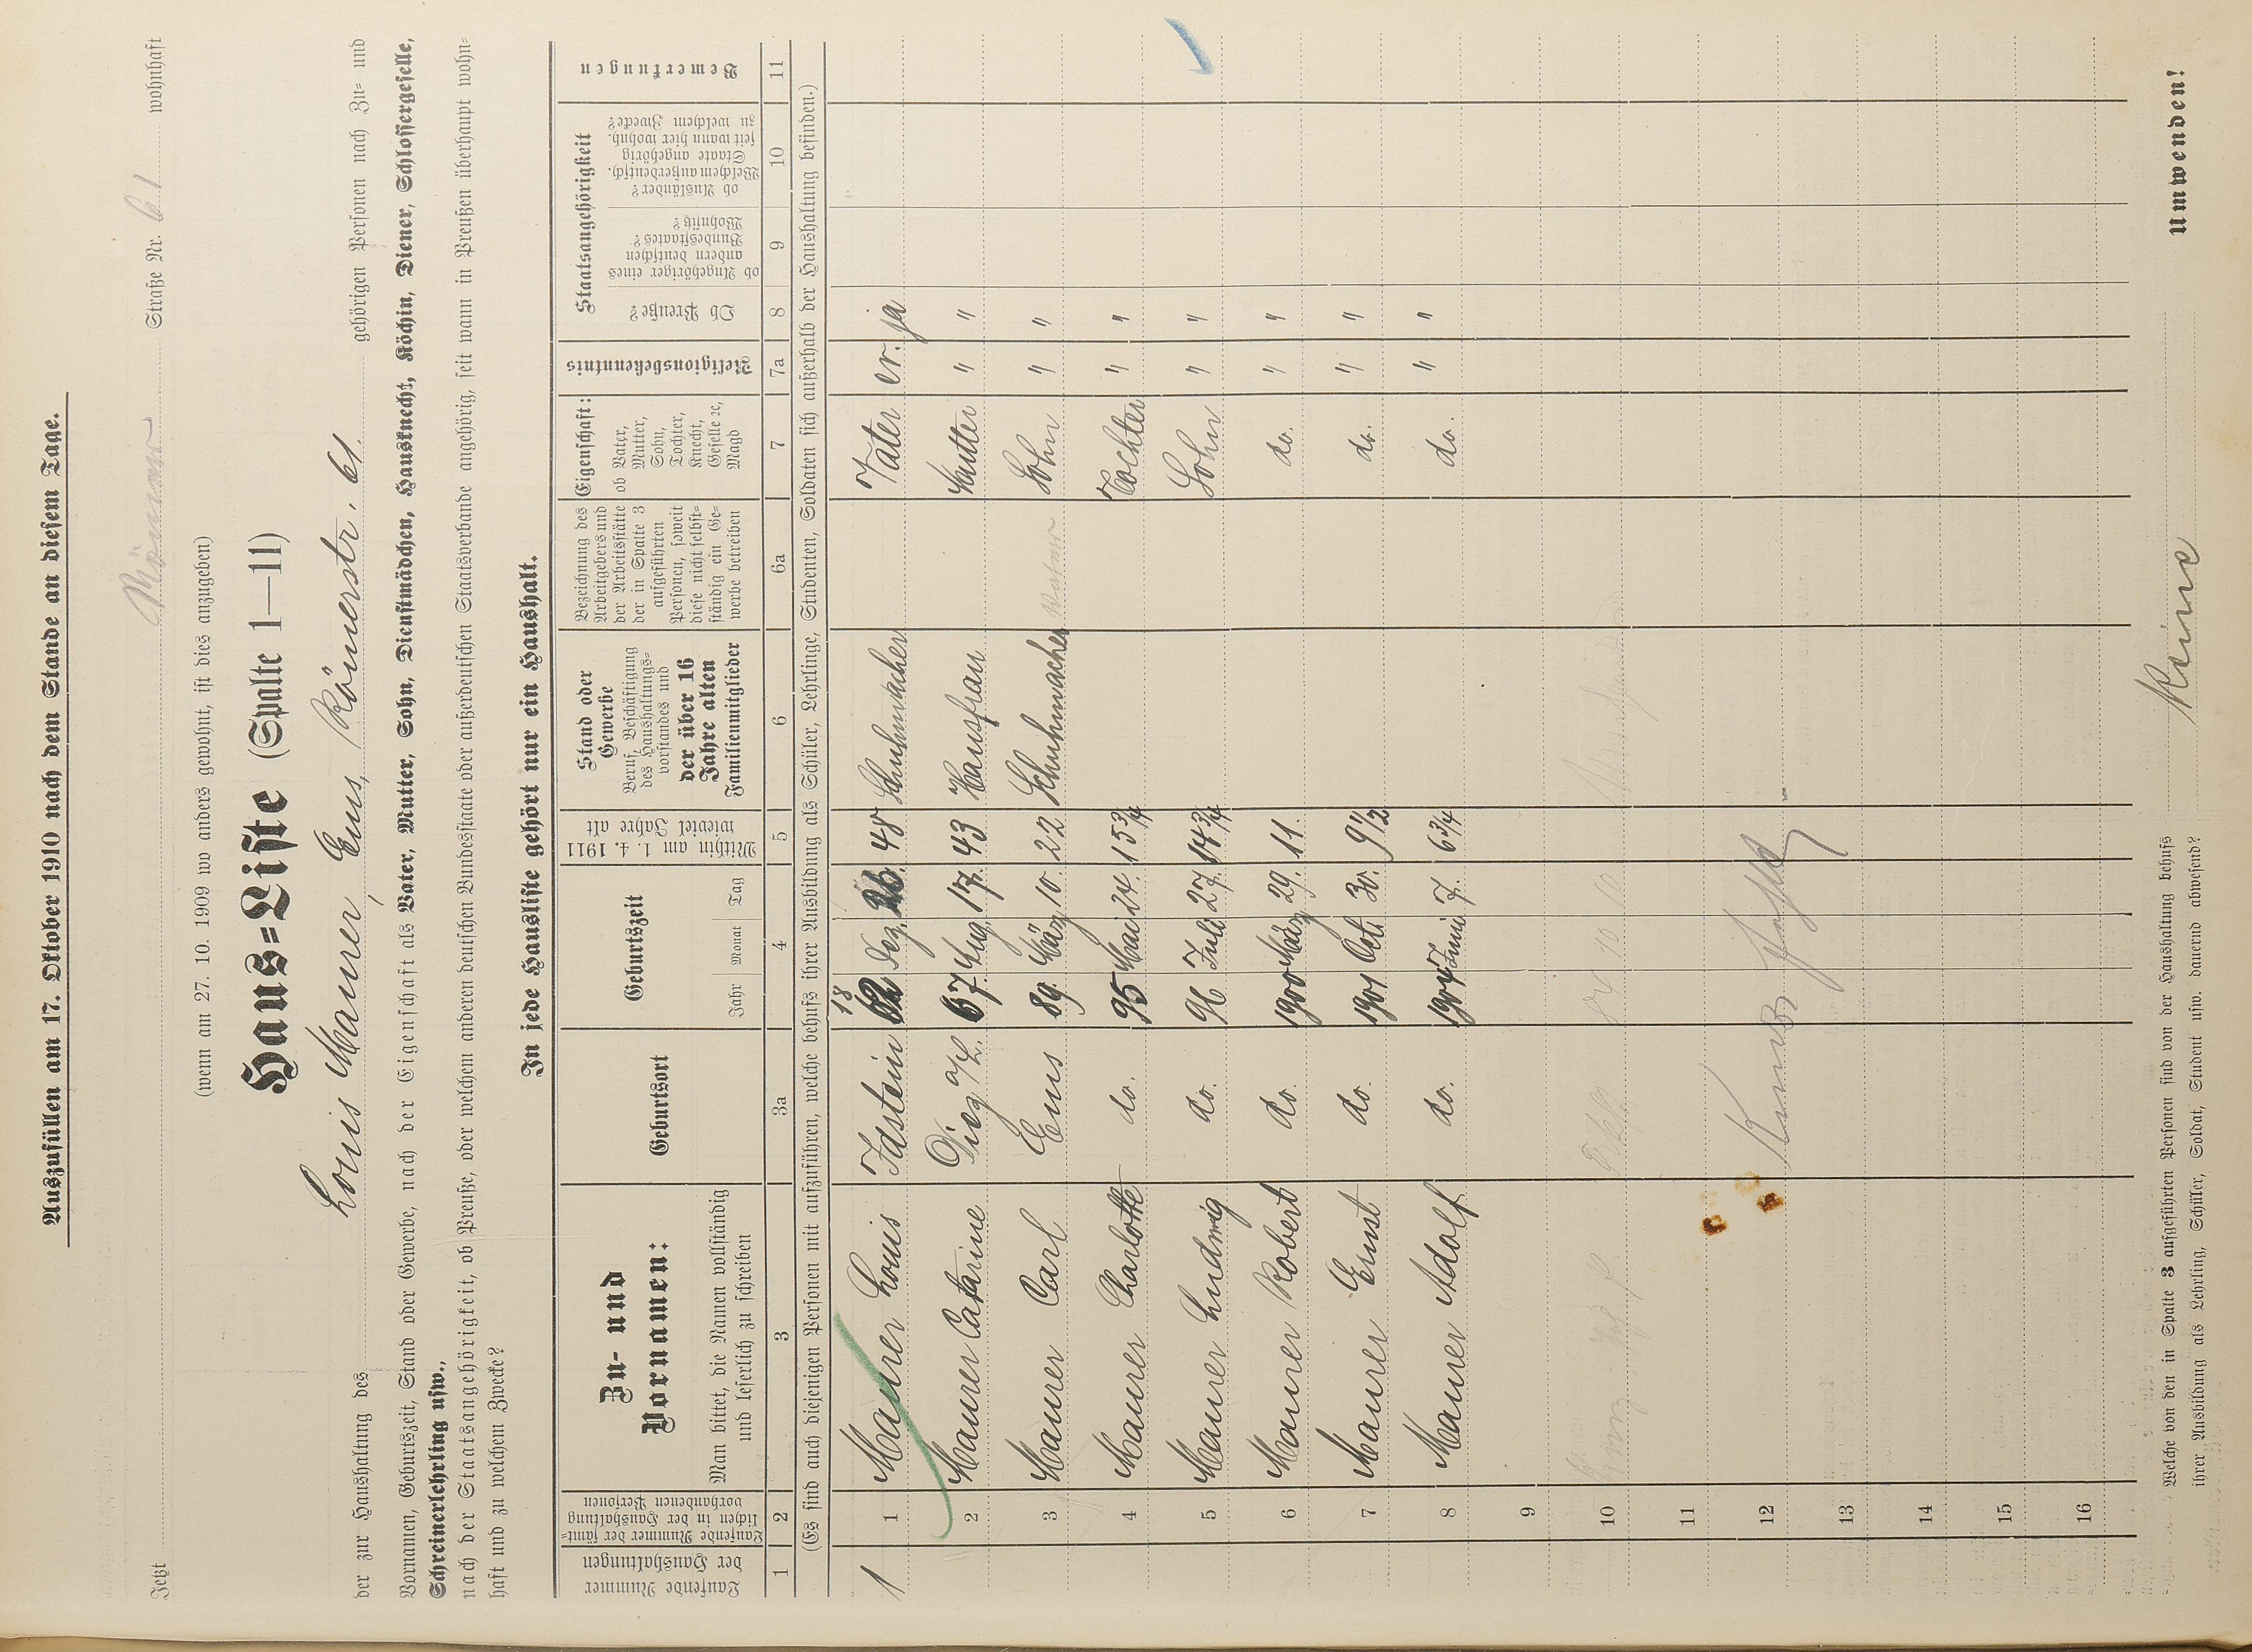 Auszufüllen am 17. Oktober 1910 nach dem Stande an diesem Tage.
Jetzt Römer Straße Nr. 61 wohnhaft
(wenn am 27. 10. 1909 wo anders gewohnt, ist dies anzugeben)
Haus=Liste (Spalte 1—11)
der zur Haushaltung des Louis Maurer, Ems, Römerstr. 61. gehörigen Personen nach Zu= und
Vornamen, Geburtszeit, Stand oder Gewerbe, nach der Eigenschaft als Vater, Mutter, Sohn, Dienstmädchen, Hausknecht, Köchin, Diener, Schlossergeselle,
Schreinerlehrling usw.,
nach der Staatsangehörigkeit, ob Preuße, oder welchem anderen deutschen Bundesstaate oder außerdeutschen Staatsverbande angehörig, seit wann in Preußen überhaupt wohn=
haft und zu welchem Zwecke?
In jede Hausliste gehört nur ein Haushalt.
Laufende Nummer der Haushaltungen
Laufende Nummer der sämt=lichen in der Haushaltung vorhandenen Personen
Zu= und Vornamen:
Man bittet, die Namen vollständig und leserlich zu schreiben
Geburtsort
Geburtszeit
Jahr Monat Tag
Mithin am 1. 4. 1911 wieviel Jahre alt
Stand oder Gewerbe
Beruf, Beschäftigung des Haushaltungs=vorstandes und der über 16 Jahre alten Familienmitglieder
Bezeichnung des Arbeitgebers und der Arbeitsstätte der in Spalte 3 aufgeführten Personen, soweit diese nicht selbst=ständig ein Ge=werbe betreiben
Eigenschaft:
ob Vater, Mutter, Sohn, Tochter, Knecht, Geselle ꝛc, Magd
Religionsbekenntnis
Staatsangehörigkeit
Ob Preuße?
ob Angehöriger eines andern deutschen Bundesstaates? Wohnsitz?
ob Ausländer? Welchem außerdeutsch. Staate angehörig seit wann hier wohnh. zu welchem Zwecke?
Bemerkungen
1 2 3 3a 4 5 6 6a 7 7a 8 9 10 11
(Es sind auch diejenigen Personen mit aufzuführen, welche behufs ihrer Ausbildung als Schüler, Lehrlinge, Studenten, Soldaten sich außerhalb der Haushaltung befinden.)
1 1 Maurer Louis Idstein 1862 Dez. 26. 48 Schuhmacher Vater ev. ja
2 Maurer Catarine Diez a/L. 67. Aug. 17. 43 Hausfrau Mutter " "
3 Maurer Carl Ems 89. März 10. 22 Schuhmacher Sohn " "
4 Maurer Charlotte do. 95 Mai 24. 15 3/4 Tochter " "
5 Maurer Ludwig do. 96 Juli 27. 14 3/4 Sohn " "
6 Maurer Robert do. 1900 März 29. 11. do. " "
7 Maurer Ernst do. 1901 Oct. 30. 9 1/2 do. " "
8 Maurer Adolf do. 1904 Juni 7. 6 3/4 do. " "
9
10
11
12
13
14
15
16
Welche von den in Spalte 3 aufgeführten Personen sind von der Haushaltung behufs
ihrer Ausbildung als Lehrling, Schüler, Soldat, Student usw. dauernd abwesend? Keine
Umwenden!